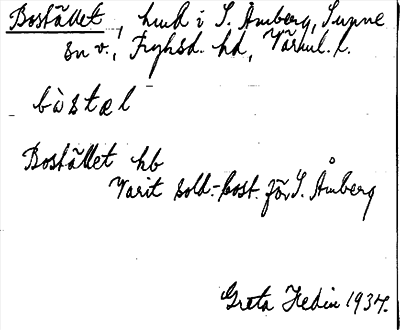 Bostället, hmd i S. Åmberg, Sunne
sn v., Fryksd. hd, Värml. l.
bòstæl
Bostället hb
Varit sold.-bost. för S. Åmberg
Greta Hedin 1934.